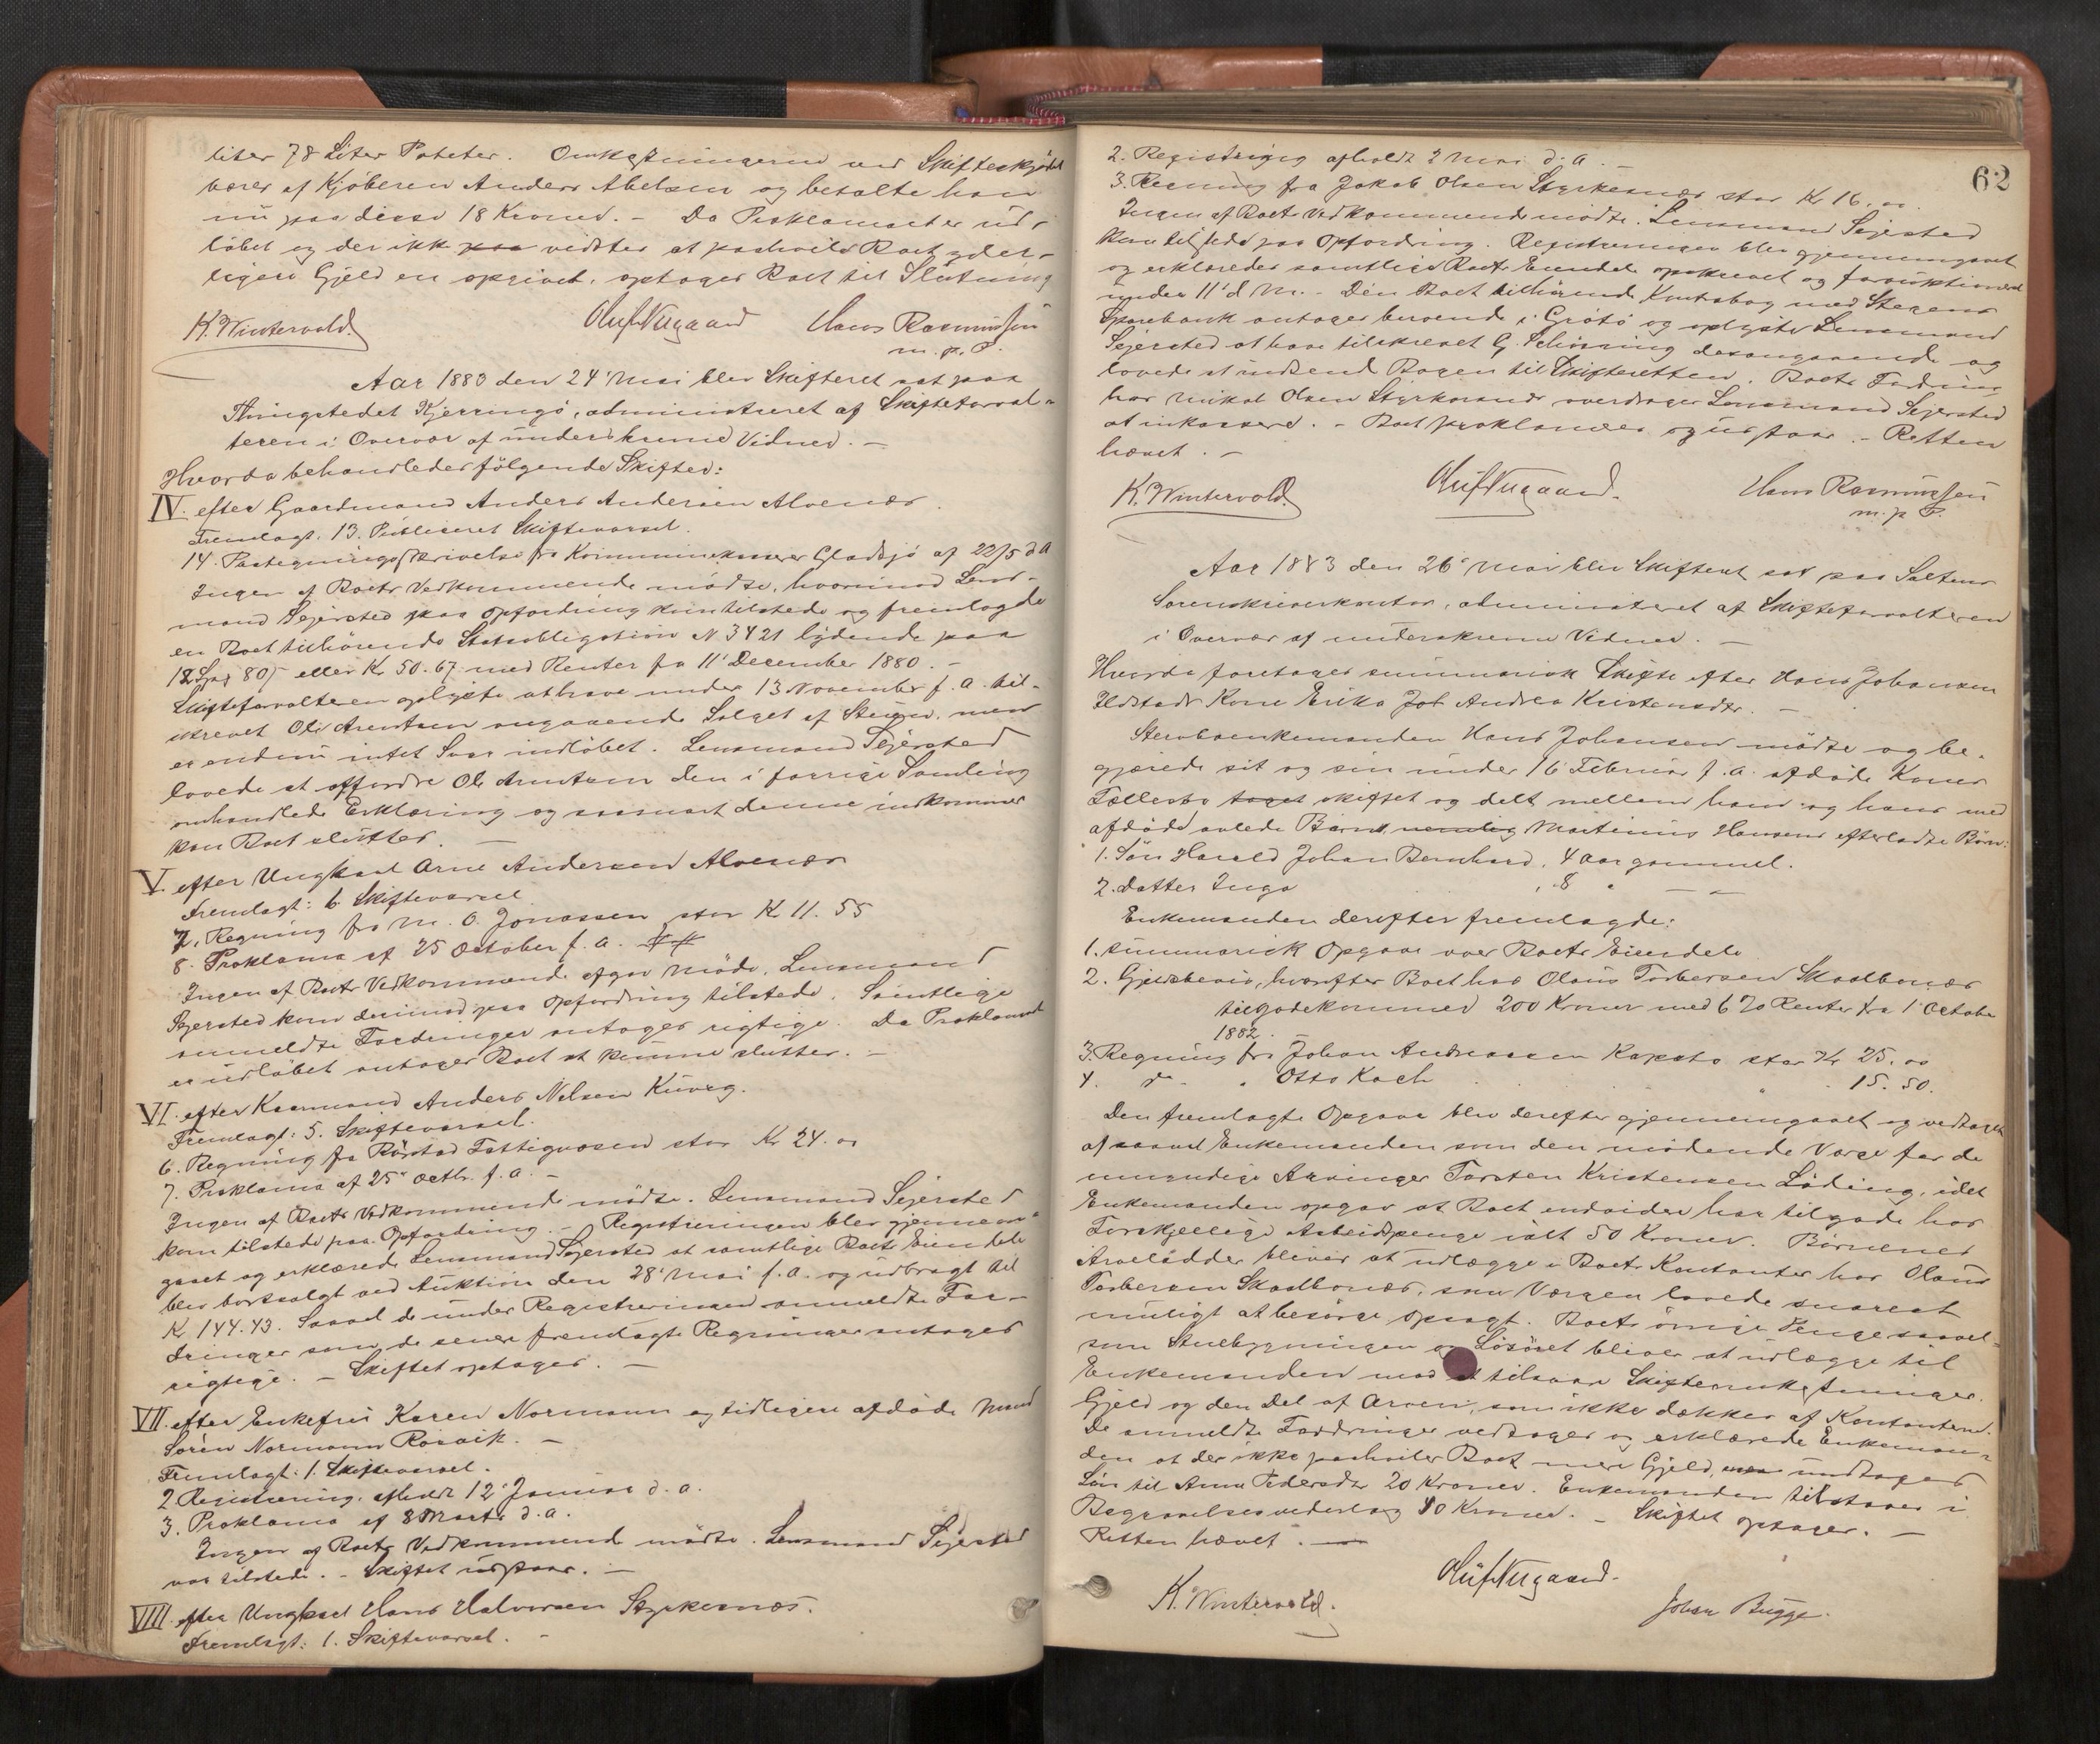 liter 78 Liter Poteter. Omkostningerne ved Skifteskjødet
bæres af Kjøberen Anders Abelsen og betalte han
nu paa disse 18 Kroner. – Da Proklamaet er ud-
løbet og der ikke paa vidstes at paahvile Boet yder-
ligere Gjeld en opgivet, optages Boet til Slutning
K. Wintervold. Oluf Nugaard Hans Rasmussen
m. p. P.
Aar 1883 den 24' Mai blev Skifteret sat paa
Thingstedet Kjerringø, administreret af Skifteforval-
teren i Overvær af underskrevne Vidner. –
Hvorda behandledes følgende Skifter:
IV. efter Gaardmand Anders Andersen Alvenæs.
Fremlagt. 13. Publiceret Skiftevarsel.
14. Paategningsskrivelse fra Kommunekasserer Gladsjø af 22/5 d A
Ingen af Boets Vedkommende mødte, hvorimod Lens-
mand Sejersted paa Opfordring kom tilstede og fremlagde
en Boet tilhørende Statsobligation N 3421 lydende paa
12 Spd 80 s eller Kr 50.67 med Renter fra 11' December 1880. –
Skifteforvalteren oplyste at have under 13 November f. a. til-
skrevet Ole Arentsen angaaende Salget af Steien, men
er endnu intet Svar indløbet. Lensmand Sejersted
lovede at affordre Ole Arentsen den i forrige Samling
omhandlede Erklæring og saasnart denne indkommer
kan Boet sluttes. –
V. efter Ungkarl Arne Andersen Alvenæs
Fremlagt: 6. Skiftevarsel
7. Regning fra M. O. Jonassen stor Kr 11. 55
8. Proklama af 25 October f. a.
Ingen af Boets Vedkommende afgav Møde. Lensmand
Sejersted kom derimod paa Opfordring tilstede. Samtlige
anmeldte Fordringer antages rigtige. Da Proklamaet
er udløbet antages Boet at kunne sluttes. –
VI. efter Kaarmand Anders Nilsen Kurvg.
Fremlagt: 5. Skiftevarsel.
6. Regning fra Rørstad Fattigvæsen stor Kr 24. 00
7. Proklama af 25' Octbr. f. a. –
Ingen af Boets Vedkommende mødte. Lensmand Sejersted
kom tilstede paa Opfordring. – Registreringen blev gjennem-
gaaet og erklærede Lensmand Sejersted at samtlige Boets Eiendele
blev bortsolgt ved Auktion den 28' Mai f. a. og udbragt til
Kr 144.43. Saavel de under Registreringen anmeldte For-
dringer som de senere fremlagte Regninger antages
rigtige. – Skiftet optages. –
VII. efter Enkefru Karen Normann og tidligere afdøde Mand
Søren Normann Røsvik. –
Fremlagt: 1. Skiftevarsel.
2. Registrering, afholdt 12' Januar d. a.
3. Proklama af 8 Marts d. a.
Ingen af Boets Vedkommende mødte. Lensmand Sejersted
var tilstede. – Skiftet udstaar. –
VIII. efter Ungkarl Hans Halvorsen Styrkesnæs.
Fremlagt: 1. Skiftevarsel. –
62
2. Registrering afholdt 2 Mai d. a. –
3. Regning fra Jakob Olsen Styrkesnæs stor Kr 16. 00
Ingen af Boets Vedkommende mødte. Lensmand Sejersted
kom tilstede paa Opfordring. Registreringen blev gjennemgaaet
og erklæredes samtlige Boets Eiendele opskrevet og forauktioneret
under 11' d M. – Den Boet tilhørende Kontrabog med Stegens
Sparebank antages beroende i Grøtø og oplyste Lensmand
Sejersted at have tilskrevet G. Schøning desangaaende og
lovede at indsende Bogen til Skifteretten. Boets Fordring
hos Mikal Olsen Styrkesnæs overdrages Lensmand Sejersted
at inkassere. – Boet proklameres og udstaar. – Retten
hævet. –
K. Wintervold. Oluf Nugaard. Hans Rasmussen
m. p. P.
Aar 1883 den 26' Mai blev Skifteret sat paa Saltens
Sorenskriverkontor, administreret af Skifteforvalteren
i Overvær af underskrevne Vidner. –
Hvorda foretages summarisk Skifte efter Hans Johansen
Ildstads Kone Erika Joh Andrea Kristensdtr. –
Stervboenkemanden Hans Johansen mødte og be-
gjærede sit og sin under 16 Februar f. a. afdøde Kones
Fællesbo taget skiftet og delt mellem ham og hans med
afdøde avlede Barns nemlig Martinus Hansens efterladte Børn:
1. Søn Harald Johan Bernhard, 4 Aar gammel.
2. Datter Inga , 8 " –
Enkemanden derefter fremlagde:
1. Summarisk Opgave over Boets Eiendele
2. Gjeldsbevis, hvorefter Boet hos Olaus Torbersen Skadbonæs
tilgodekommer 200 Kroner med 6 % Renter fra 1' October
1882.
3. Regning fra Johan Andreassen Kapsto stor Kr 25. 00
4. do " Otto Koch " " 15. 50.
Den fremlagte Opgave blev derefter gjennemgaaet og vedtaget
af saavel Enkemanden som den mødende Værge for de
umyndige Arvinger Torsten Kristensen Løding, idet
Enkemanden opgav at Boet endvidere har tilgode hos
Forskjellige Arbeidspenge ialt 50 Kroner. Børnenes
Arvelodder bliver at udlægge i Boets Kontanter hos Olaus
Torbersen Skadbonæs, som Værgen lovede snarest
muligt at besørge opsagt. Boets øvrige Penge saavel-
som Stuebygningen og Løsøret bliver at udlægge til
Enkemanden mod at tilsvare Skifteomkostninger,
Gjeld og den Del af Arven, som ikke dækkes af Kontanterne.
De anmeldte Fordringer vedtages og erklærede Enkeman-
den at der ikke paahviler Boet mere Gjeld, undtagen
Løn til Anna Pedersdtr 20 Kroner. Enkemanden tilstaaes i
Begravelsesvederlag 40 Kroner. – Skiftet optages. –
Retten hævet. –
K. Wintervold. Oluf Nugaard. Johan Bugge.